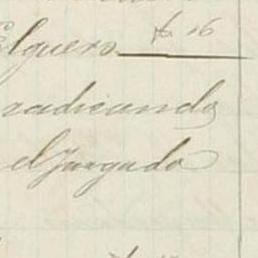 Elguero
radicando
el Juzgado